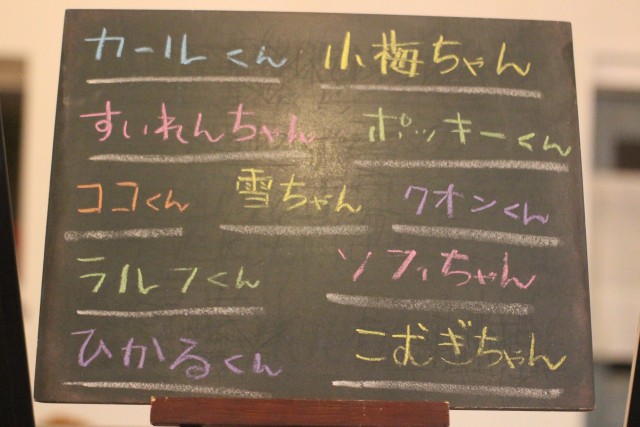 カールくん 小梅ちゃん
すいれんちゃん ポッキーくん
ココくん 雪ちゃん クオンくん
ラルフくん ソフィちゃん
ひかるくん こむぎちゃん